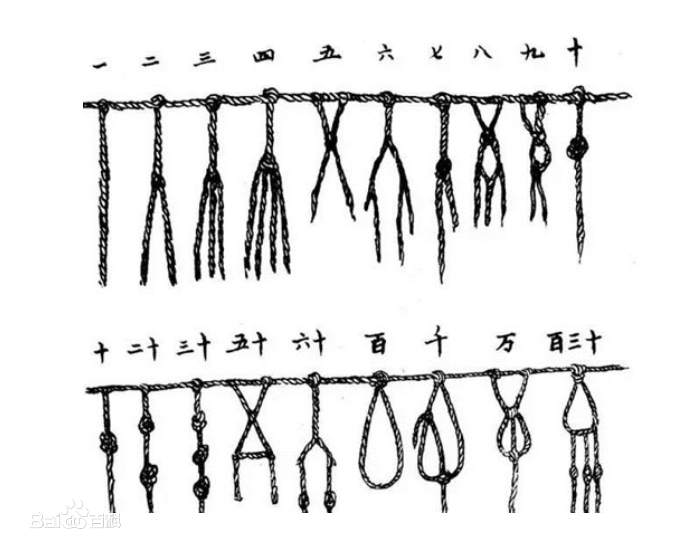 一 二 三 四 五 六 七 八 九 十
十 二十 三十 五十 六十 百 千 万 百三十
Bai百科